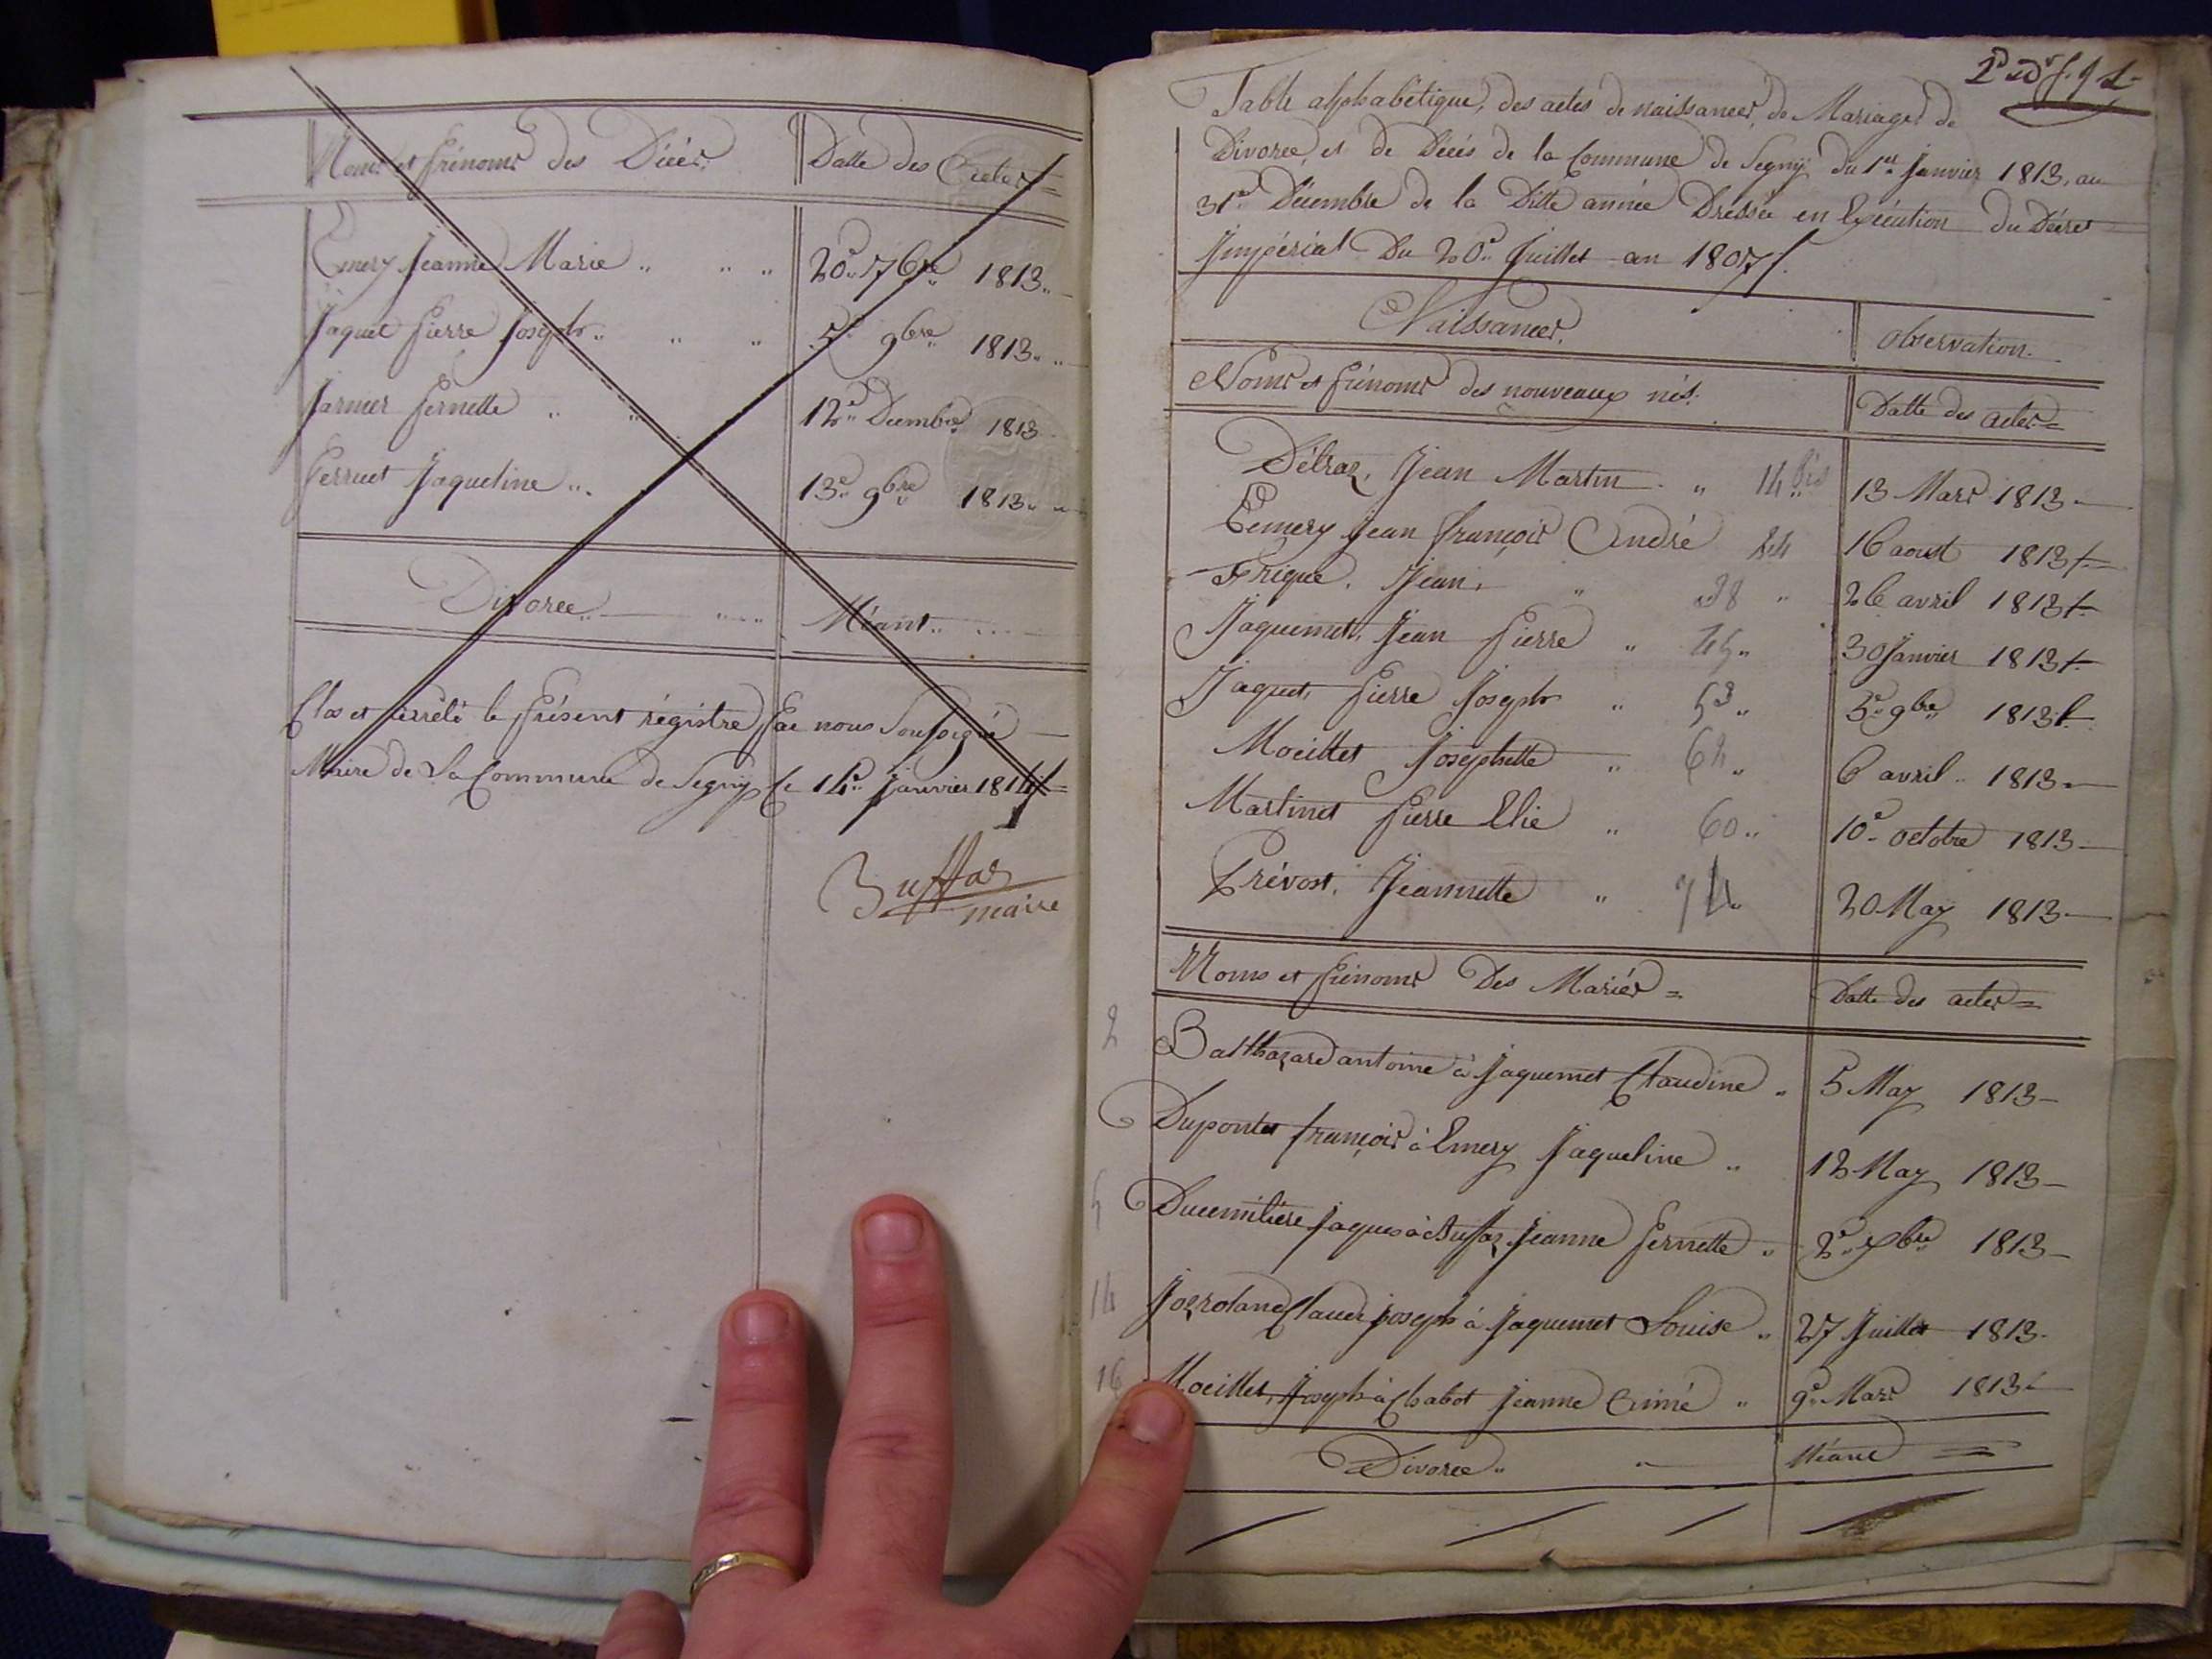 Noms et prénoms des Décès
Datte des Actes
Emery Jeanne Marie " " " 20e 7bre 1813
Jaquet Pierre Joseph " " " 5e 9bre 1813
Jarnier Pernette " " 12e Decembre 1813
Perruet Jaqueline " 13e 9bre 1813
Divorce Néant
Clos et arrêté le présent régistre par nous Soussigné
Maire de la Commune de Segny le 14e Janvier 1814
Buffaz
maire
Table alphabétique, des actes de naissances, de Mariages de
Divorce, et de Décès de la Commune de Segny du 1er Janvier 1813, au
31e Décembre de la Ditte année Dressée en Exécution du Décret
Impérial Du 20e Juillet an 1807
Naissances
observation
Noms et prénoms des nouveaux nés
Datte des actes
Détraz, Jean Martin " 14 bis 13 Mars 1813
Eemery Jean françois André 24 16 aoust 1813
Frique, Jean " 38 " 26 avril 1813
Jaquemet, Jean Pierre " 45 30 Janvier 1813
Jaquet, Pierre Joseph " 53 5e 9bre 1813
Moeillet Josephette " 62 6 avril 1813
Martinet Pierre Elie " 60 10e octobre 1813
Prévost, Jeannette " 74 20 May 1813
Noms et prénoms Des Mariés
Datte des actes
2 Balthazard antoine à Jaquemet Claudine " 5 May 1813
Dupontet françois à Emery Jaqueline " 12 May 1813
5 Ducimitière Jaques à Buffaz Jeanne Pernette " 2e xbre 1813
14 Jozroland Claude joseph à Jaquemet Louise " 27 Juillet 1813
16 Moeillet, Joseph à Chabot Jeanne Aimé " 9e Mars 1813
Divorce " " Néant